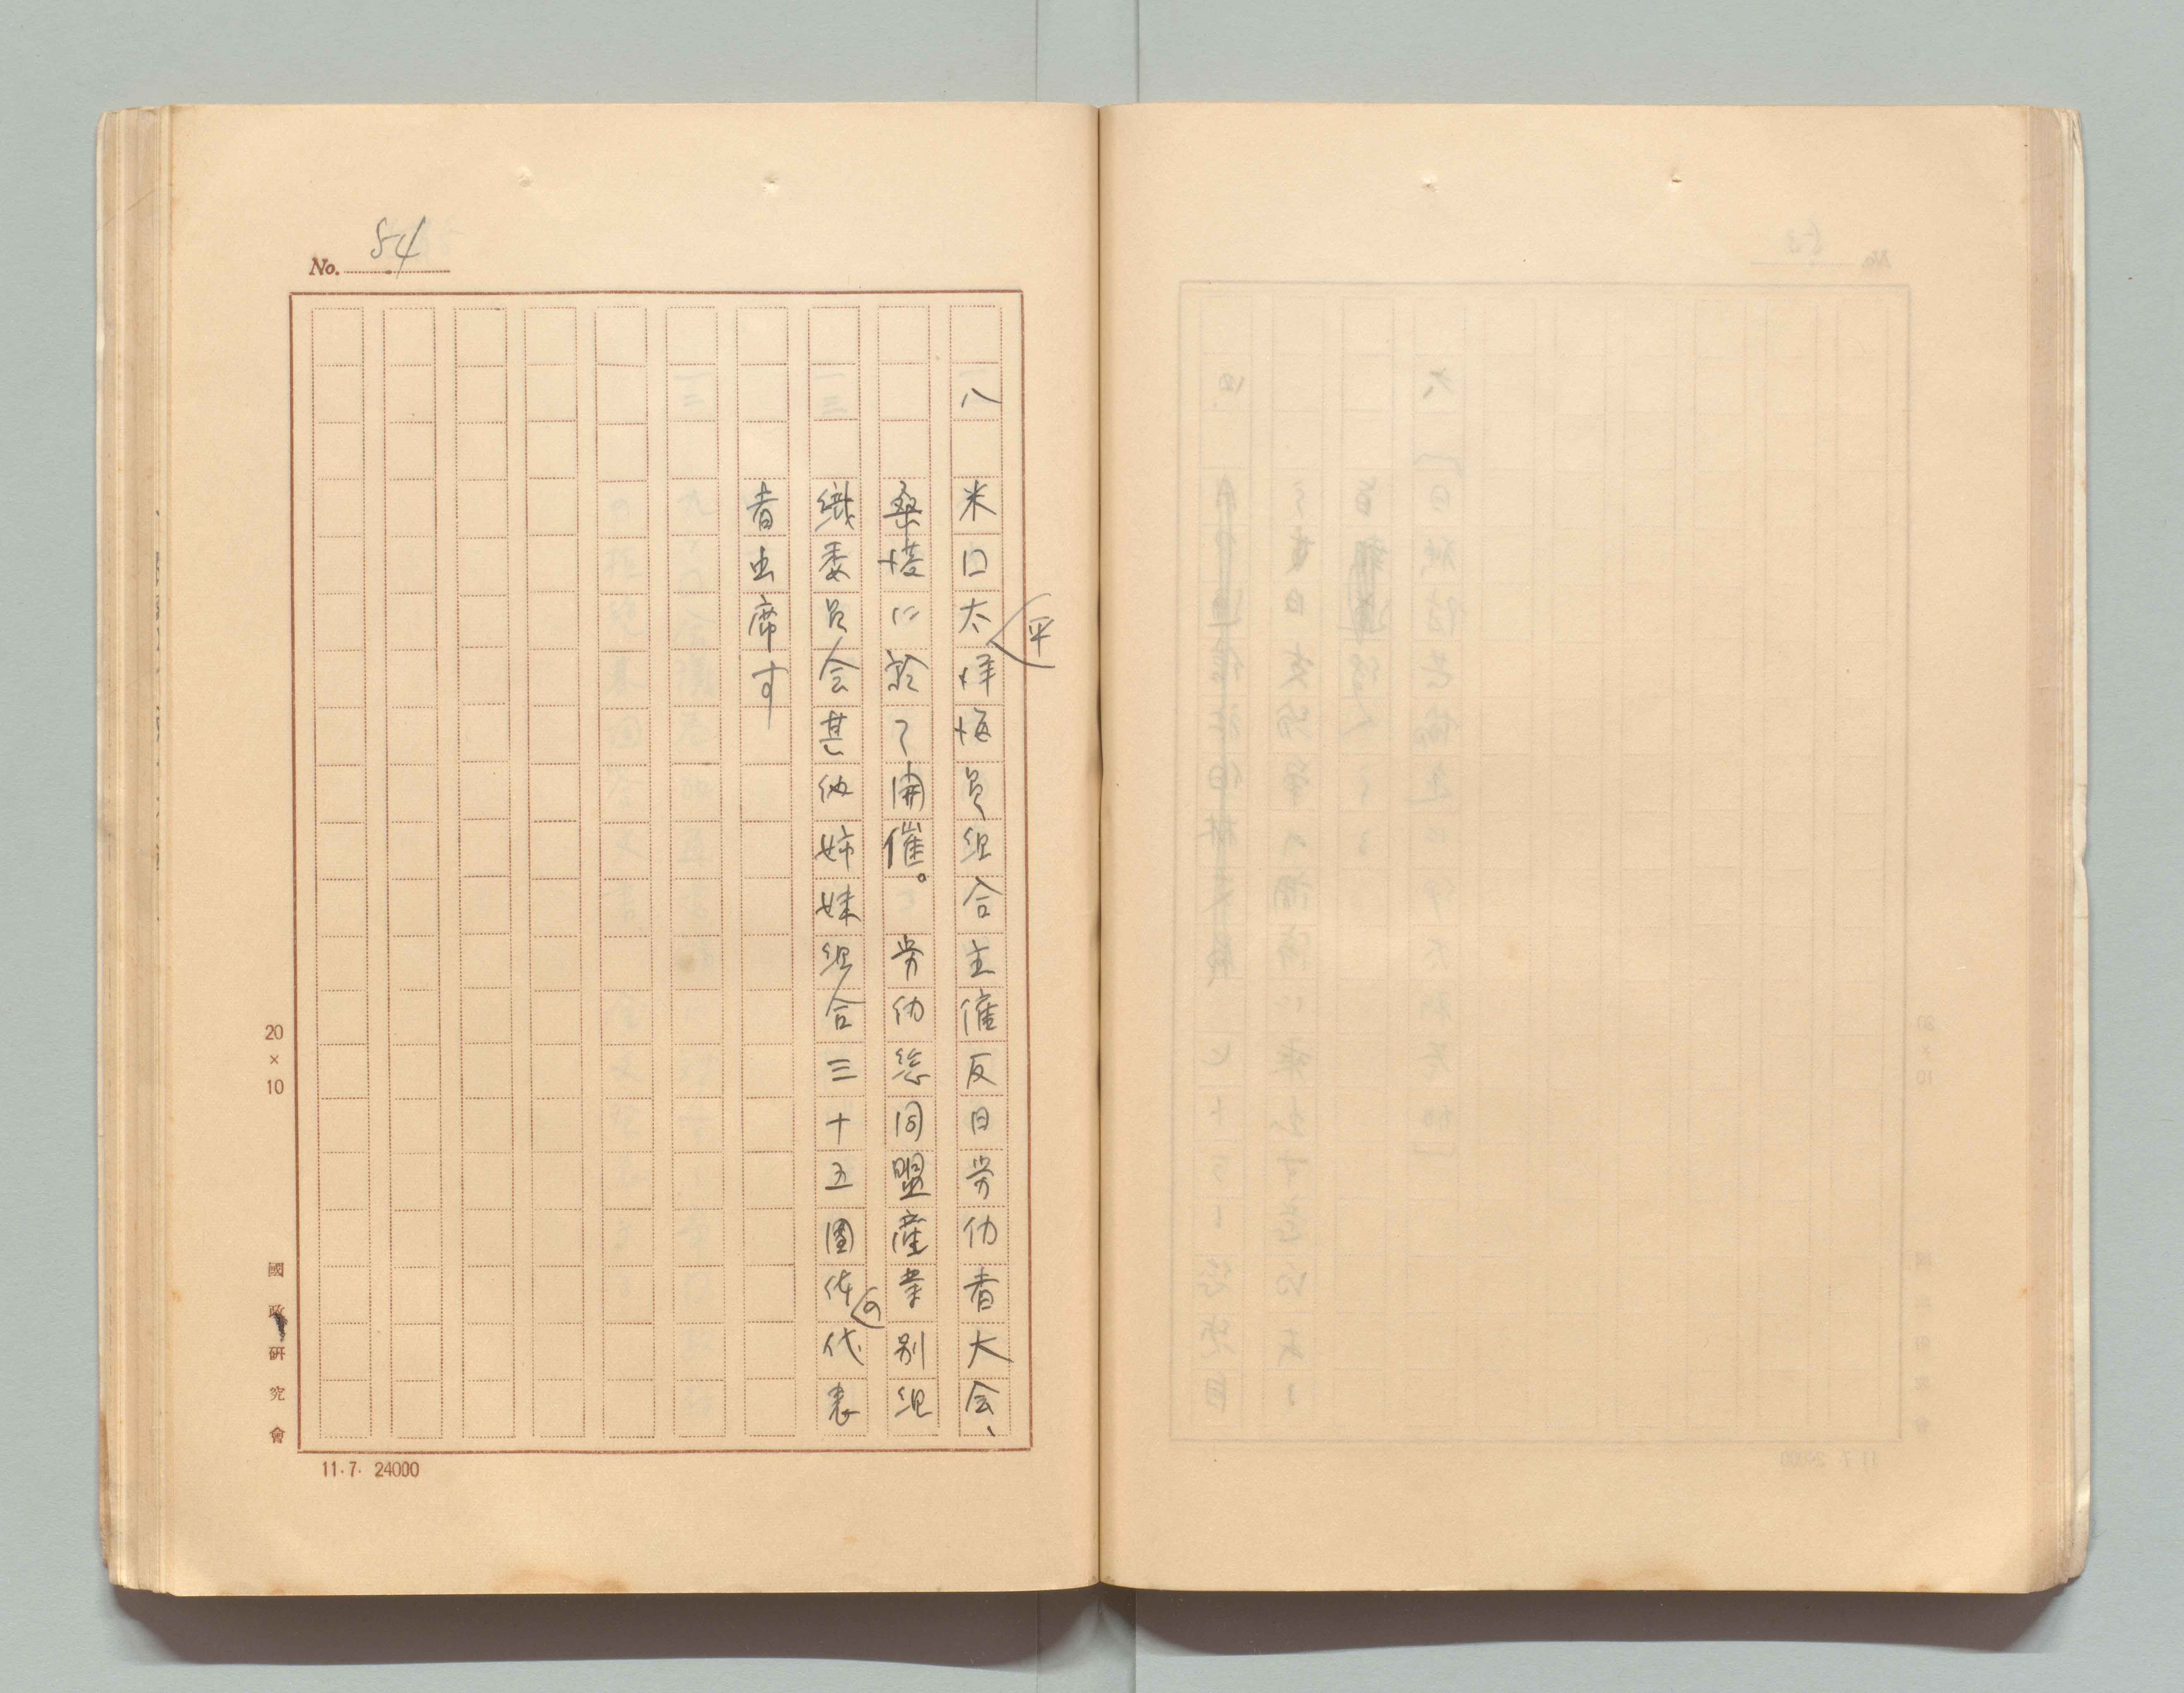 No. 54
八 米囗太平洋海員組合主催反日労仂者大会、
桑港に於て開催。 労仂総同盟産業別組
織委員会其他姉妹組合三十五團体の代表
者出席す
20×10
國政研究會
11.7. 24000